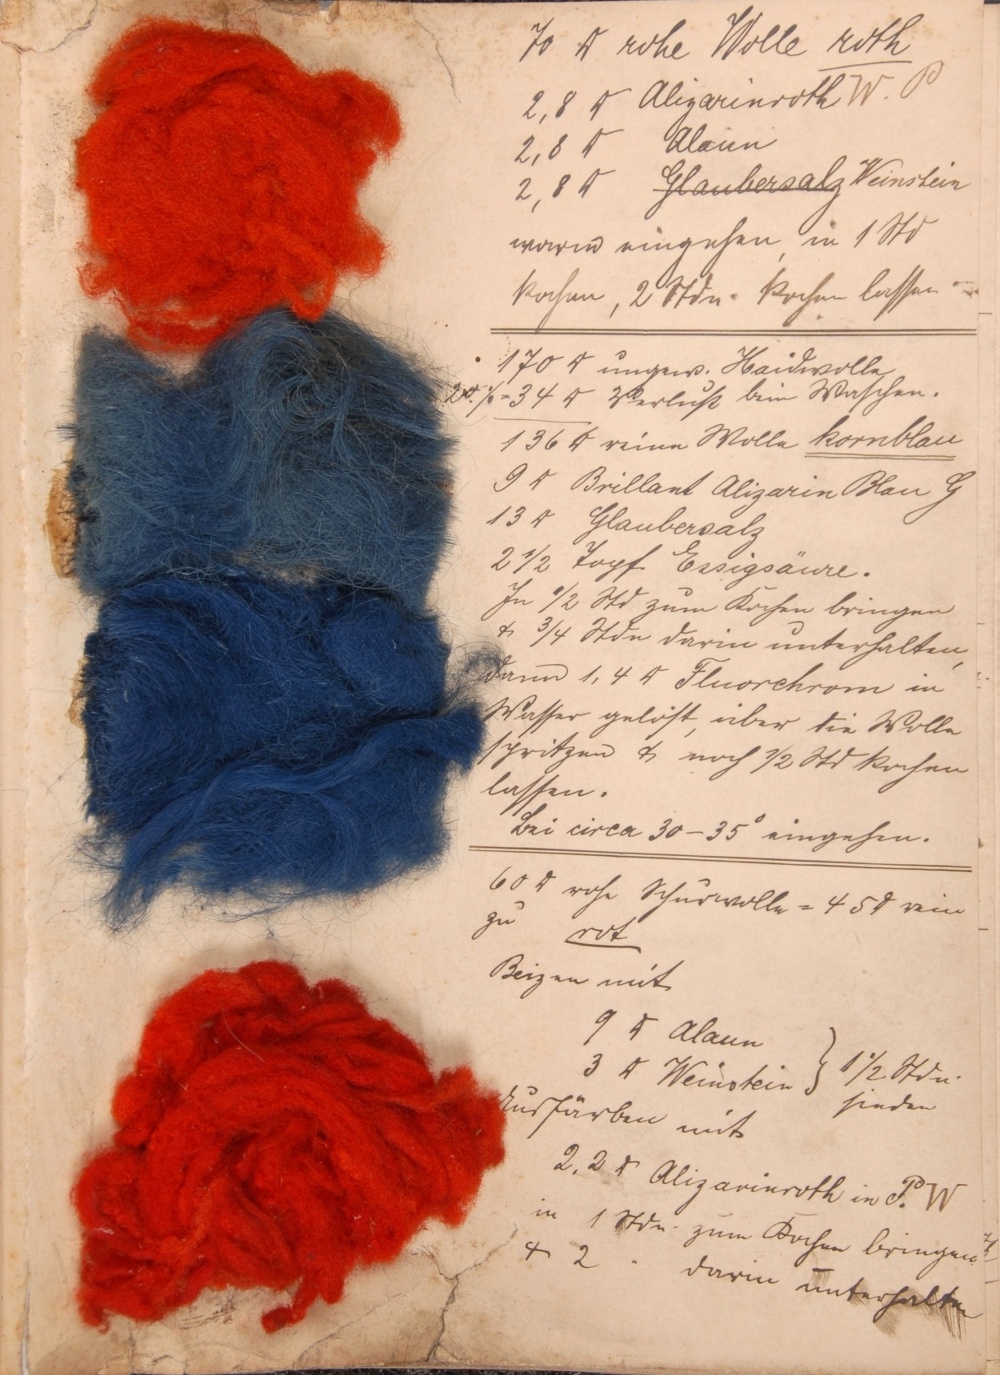 70 ℔ rohe Wolle roth
2,8 ℔ Alizarinroth W. P
2,8 ℔ Alaun
2,8 ℔ Glaubersalz Weinstein
warm eingehen, in 1 Std
kochen, 2 Stdn. kochen lassen
170 ℔ ungew. Haidwolle
20 % = 34 ℔ Verlust beim Waschen.
136 ℔ reine Wolle kornblau
9 ℔ Brillant Alizarin Blau G
13 ℔ Glaubersalz
2 1/2 Topf Essigsäure.
In 1/2 Std zum Kochen bringen
& 3/4 Stdn darin unterhalten,
dann 1,4 ℔ Fluorchrom in
Wasser gelöst, über die Wolle
spritzen & noch 1/2 Std kochen
lassen.
Bei circa 30–35° eingehen.
60 ℔ rohe Schurwolle = 45 ℔ rein
zu rot
Beizen mit
9 ℔ Alaun
3 ℔ Weinstein } 1 1/2 Stdn.
sieden
Ausfärben mit
2,2 ℔ Alizarinroth in P. W
in 1 Stdn. zum Kochen bringen
& 2 " darin unterhalten